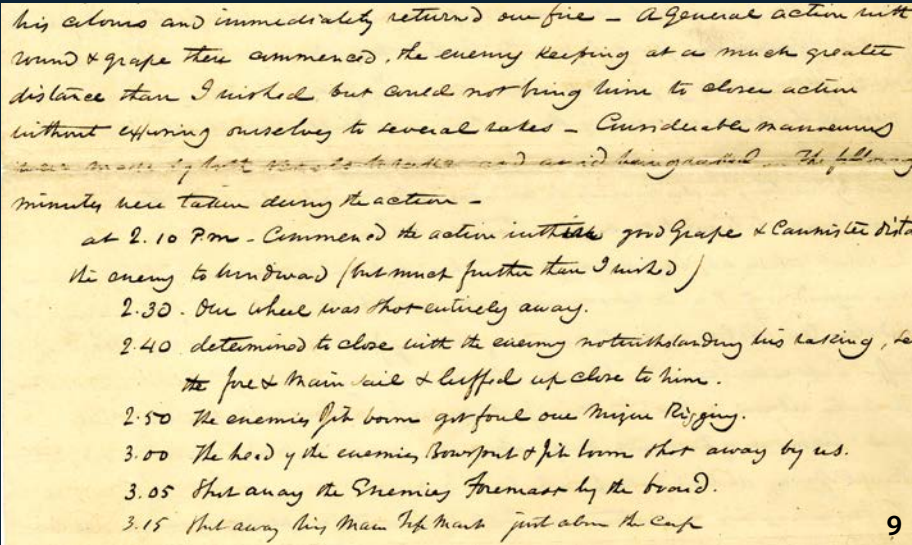 his colours and immediately returnd our fire – A General action with
round & grape then commenced, the enemy keeping at a much greater
distance than I wished, but could not bring him to closer action
without exposing ourselves to several rakes – Considerable manoeuvres
were made by both vessels to rake and avoid being raked. The following
minutes were taken during the action –
at 2.10 P.m – Commenced the action within good Grape & Cannister dista
the enemy to windward (but much further than I wished)
2.30. Our wheel was shot entirely away.
2.40 determined to close with the enemy notwithstanding his raking, se
the fore & main sail & luffed up close to him.
2.50 The enemies Jib boom got foul our Mizen Rigging.
3.00 The head of the enemies Bowsprit & Jib boom shot away by us.
3.05 Shot away the Enemies Foremast by the board.
3.15 Shot away his Main Top Mast just above the Cap
9